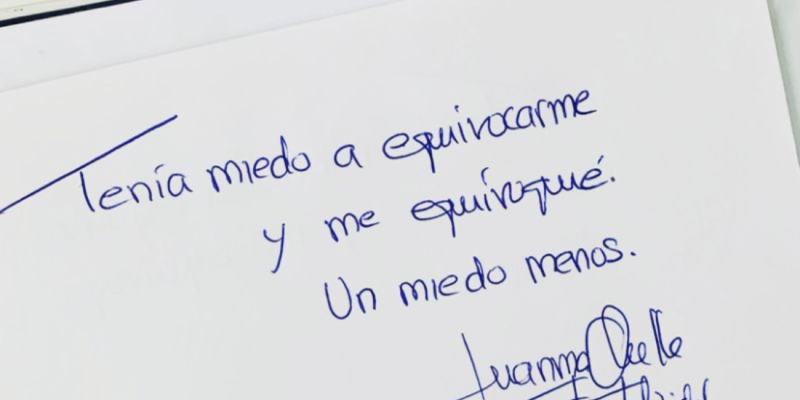 Tenía miedo a equivocarme
y me equivoqué.
Un miedo menos.
Juanma Quelle